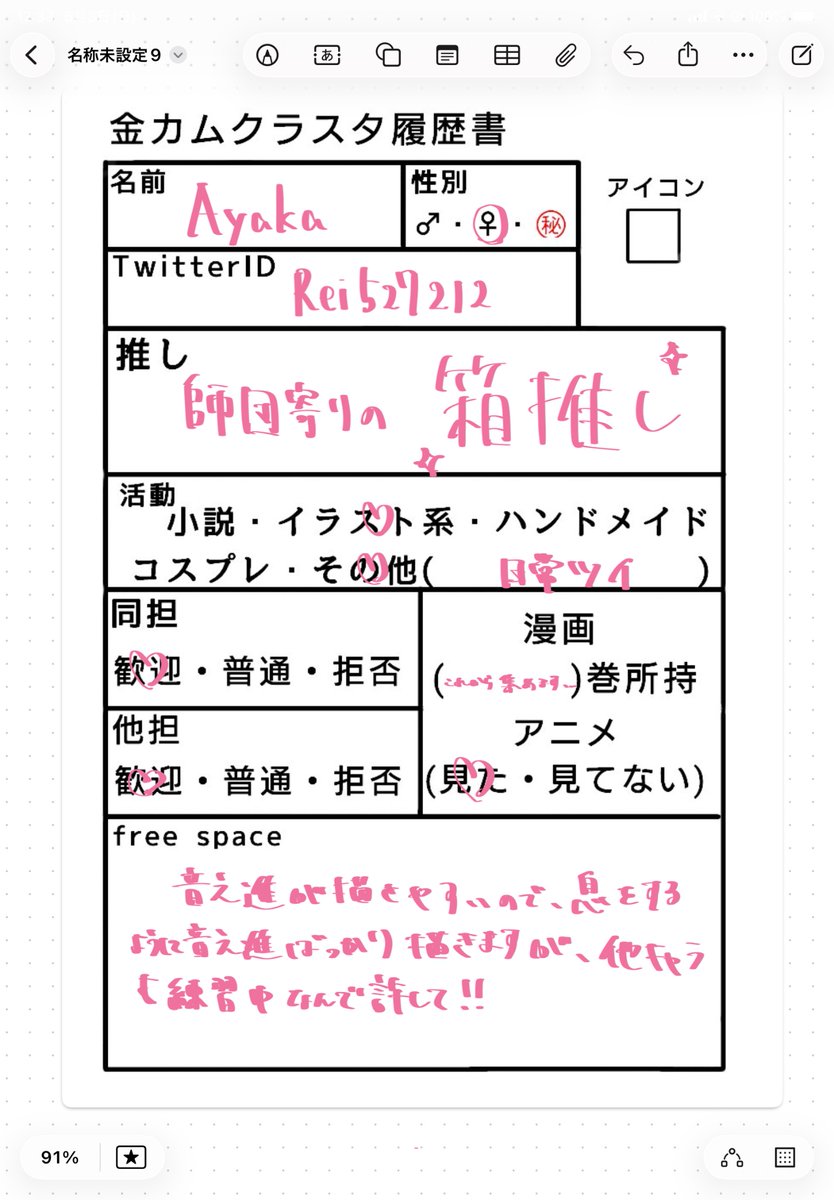 名称未設定 9
金カムクラスタ履歴書
名前
Ayaka
性別
♂・♀・㊙
アイコン
TwitterID
Rei527212
推し
師団寄りの 箱推し
活動
小説・イラスト系・ハンドメイド
コスプレ・その他(日常ツイ)
同担
歓迎・普通・拒否
他担
歓迎・普通・拒否
漫画
(これから集めます)巻所持
アニメ
(見た・見てない)
free space
音之進が描きやすいので、息をする
ように音之進ばっかり描きますが、他キャラ
も練習中なんで許して!!
91%